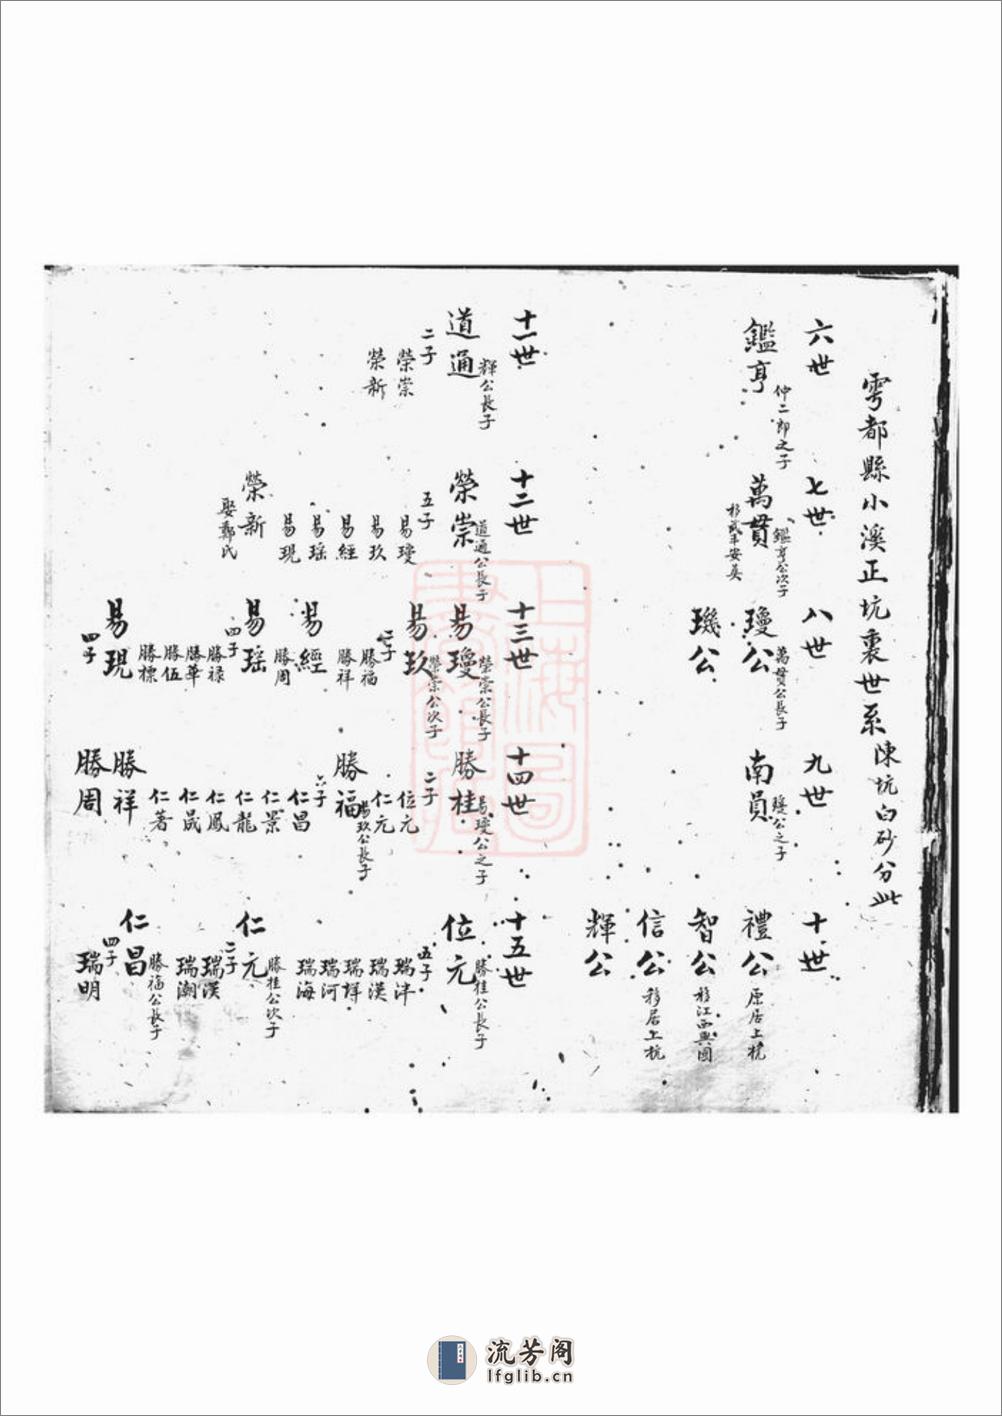 雩都縣小溪正坑裏世系 陳坑白砂分此
六世
鑑亨 仲二郎之子
七世
萬貫 鑑亨公次子
移武平安美
八世
瓊公 萬貫公長子
璣公
九世
南員 瓊公之子
十世
禮公 原居上杭
智公 移江西興國
信公 移居上杭
輝公
十一世
道通 輝公長子
二子
榮崇
榮新
十二世
榮崇 道通公長子
五子
易瓊
易玖
易經
易瑶
易現
榮新
娶鄭氏
十三世
易瓊 榮崇公長子
易玖 榮崇公次子
二子
勝福
勝祥
易經
勝周
易瑶
四子
勝禄
勝華
勝伍
勝標
易現
四子
十四世
勝桂 易瓊公之子
二子
位元
仁元
勝福 易玖公長子
六子
仁昌
仁景
仁龍
仁鳳
仁晟
仁著
勝祥
勝周
十五世
位元 勝桂公長子
五子
瑞津
瑞漢
瑞詳
瑞河
瑞海
仁元 勝桂公次子
二子
瑞漢
瑞潮
仁昌 勝福公長子
四子
瑞明
上海圖書館藏
流芳阁
lfglib.cn